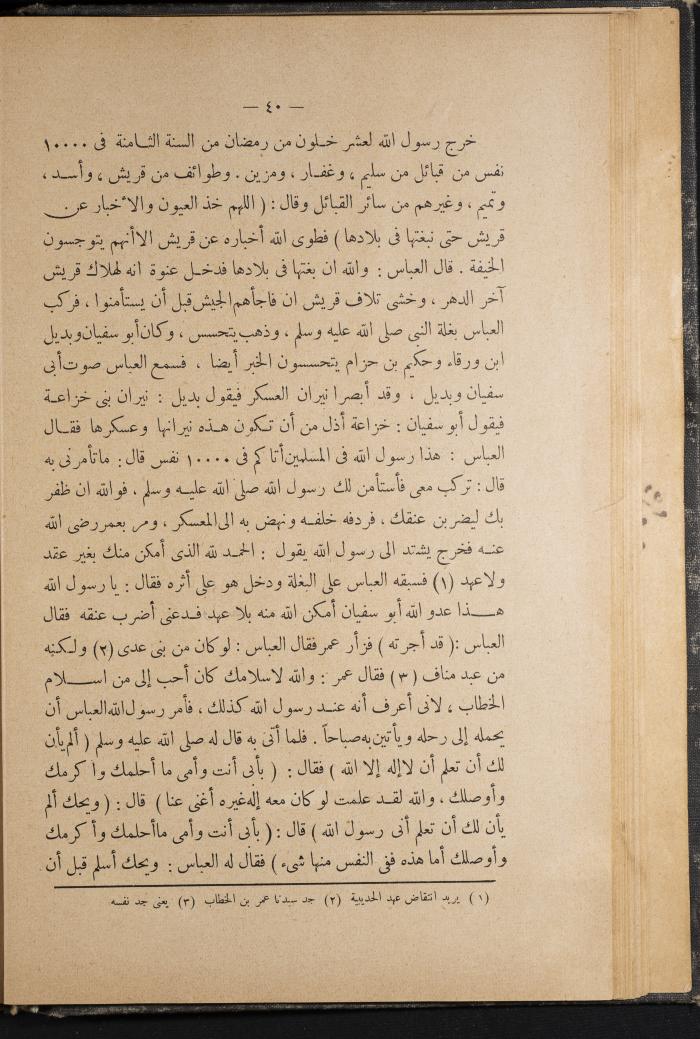 — ٤٠ —
خرج رسول الله لعشر خلون من رمضان من السنة الثامنة فى ١٠٠٠٠
نفس من قبائل من سليم ، وغفار ، ومزين . وطوائف من قريش ، وأسد ،
وتميم ، وغيرهم من سائر القبائل وقال : ( اللهم خذ العيون والأخبار عن
قريش حتى نبغتها فى بلادها ) فطوى الله أخباره عن قريش الا أنهم يتوجسون
الخيفة . قال العباس : والله ان بغتها فى بلادها فدخل عنوة انه لهلاك قريش
آخر الدهر ، وخشى تلاف قريش ان فاجأهم الجيش قبل أن يستأمنوا ، فركب
العباس بغلة النبى صلى الله عليه وسلم ، وذهب يتحسس ، وكان أبو سفيان وبديل
ابن ورقاء وحكيم بن حزام يتحسسون الخبر أيضا ، فسمع العباس صوت أبى
سفيان وبديل ، وقد أبصرا نيران العسكر فيقول بديل : نيران بنى خزاعة
فيقول أبو سفيان : خزاعة أذل من أن تكون هذه نيرانها وعسكرها فقال
العباس : هذا رسول الله فى المسلمين أتاكم فى ١٠٠٠٠ نفس قال : ما تأمرنى به
قال : تركب معى فأستأمن لك رسول الله صلى الله عليه وسلم ، فوالله ان ظفر
بك ليضربن عنقك ، فردفه خلفه ونهض به الى المعسكر ، ومر بعمر رضى الله
عنه فخرج يشتد الى رسول الله يقول : الحمد لله الذى أمكن منك بغير عقد
ولا عهد (١) فسبقه العباس على البغلة ودخل هو على أثره فقال : يا رسول الله
هذا عدو الله أبو سفيان أمكن الله منه بلا عهد فدعنى أضرب عنقه فقال
العباس : ( قد أجرته ) فزأر عمر فقال العباس : لو كان من بنى عدى (٢) ولكنه
من عبد مناف (٣) فقال عمر : والله لاسلامك كان أحب إلى من اسلام
الخطاب ، لانى أعرف أنه عند رسول الله كذلك ، فأمر رسول الله العباس أن
يحمله إلى رحله ويأتين به صباحاً . فلما أتى به قال له صلى الله عليه وسلم ( ألم يأن
لك أن تعلم أن لا إله إلا الله ) فقال : ( بأبى أنت وأمى ما أحلمك وا كرمك
وأوصلك ، والله لقد علمت لو كان معه إله غيره أغنى عنا ) قال : ( ويحك ألم
يأن لك أن تعلم أنى رسول الله ) قال : ( بأبى أنت وأمى ما أحلمك وأكرمك
وأوصلك أما هذه ففى النفس منها شىء ) فقال له العباس : ويحك أسلم قبل أن
(١) يريد انتقاض عهد الحديبية (٢) جد سيدنا عمر بن الخطاب (٣) يعنى جد نفسه